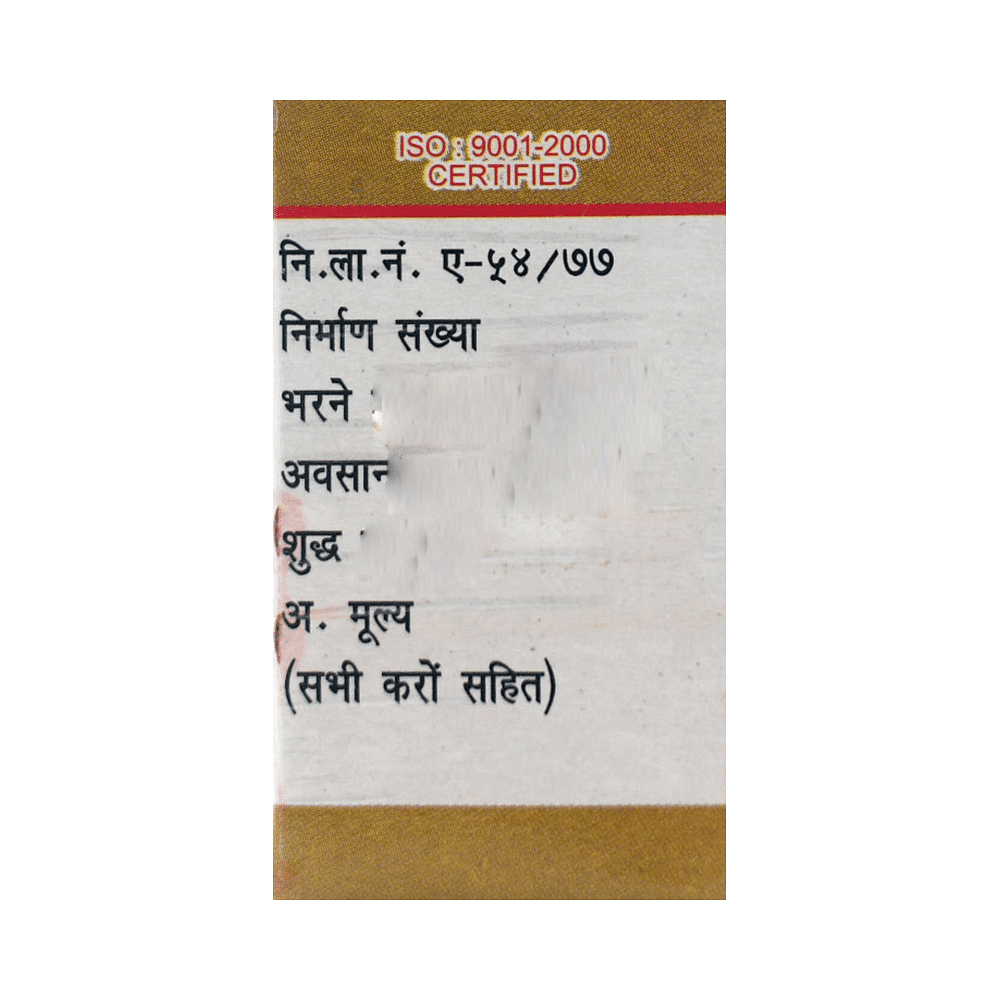 ISO : 9001-2000
CERTIFIED
नि.ला.नं. ए-५४/७७
निर्माण संख्या
भरने
अवसान
शुद्ध
अ. मूल्य
(सभी करों सहित)